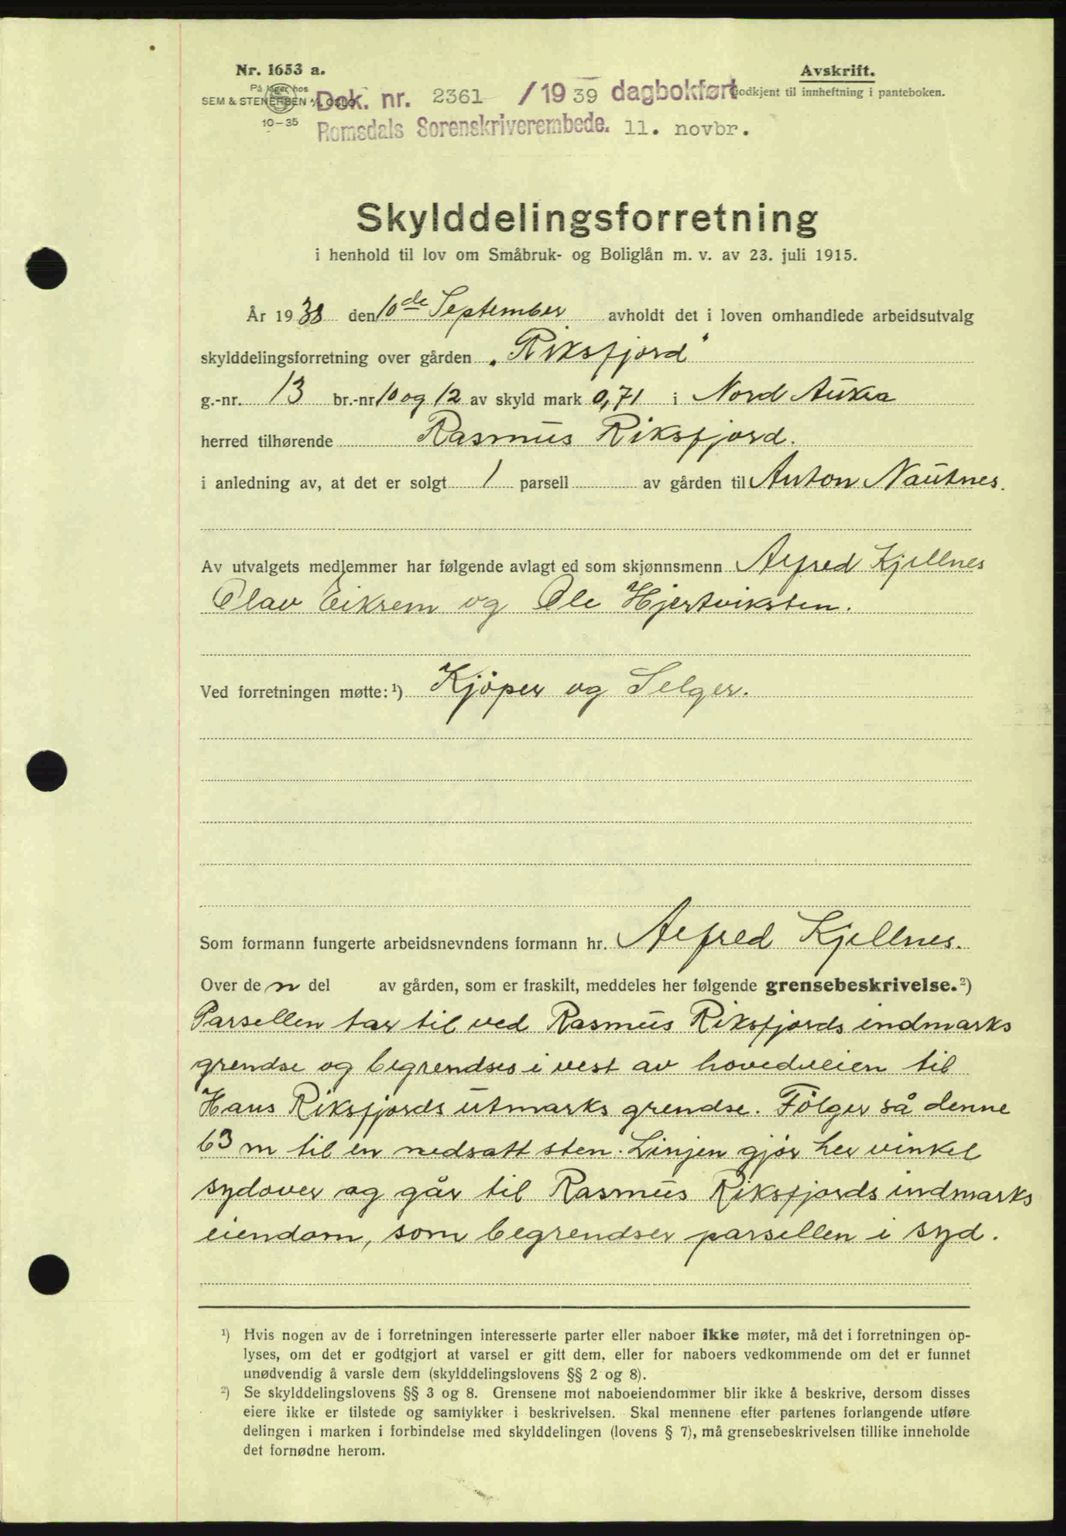 Nr. 1653 a.
Avskrift.
På lager hos
SEM & STENERSEN A/S OSLO
10-35
Dok. nr. 2361 /1939 dagbokført
Godkjent til innheftning i panteboken.
Romsdals Sorenskriverembede. 11. novbr.
Skylddelingsforretning
i henhold til lov om Småbruk- og Boliglån m. v. av 23. juli 1915.
År 1938 den 10de September avholdt det i loven omhandlede arbeidsutvalg
skylddelingsforretning over gården „Riksfjord"
g.-nr. 13 br.-nr 10 og 12 av skyld mark 0,71 i Nord Aukra
herred tilhørende Rasmus Riksfjord.
i anledning av, at det er solgt 1 parsell av gården til Anton Nautnes.
Av utvalgets medlemmer har følgende avlagt ed som skjønnsmenn Alfred Kjellnes
Olav Eikrem og Ole Hjertviksten.
Ved forretningen møtte: ¹) Kjöper og Selger.
Som formann fungerte arbeidsnevndens formann hr. Alfred Kjellnes.
Over den del av gården, som er fraskilt, meddeles her følgende grensebeskrivelse.²)
Parsellen tar til ved Rasmus Riksfjords indmarks
grendse og begrendses i vest av hovedveien til
Hans Riksfjords utmarks grendse. Fölger så denne
63 m til en nedsatt sten. Linjen gjör her vinkel
sydover og går til Rasmus Riksfjords indmarks
eiendom, som begrendser parsellen i syd.
¹) Hvis nogen av de i forretningen interesserte parter eller naboer ikke møter, må det i forretningen op-
lyses, om det er godtgjort at varsel er gitt dem, eller for naboers vedkommende om det er funnet
unødvendig å varsle dem (skylddelingslovens §§ 2 og 8).
²) Se skylddelingslovens §§ 3 og 8. Grensene mot naboeiendommer blir ikke å beskrive, dersom disses
eiere ikke er tilstede og samtykker i beskrivelsen. Skal mennene efter partenes forlangende utføre
delingen i marken i forbindelse med skylddelingen (lovens § 7), må grensebeskrivelsen tillike inneholde
det fornødne herom.